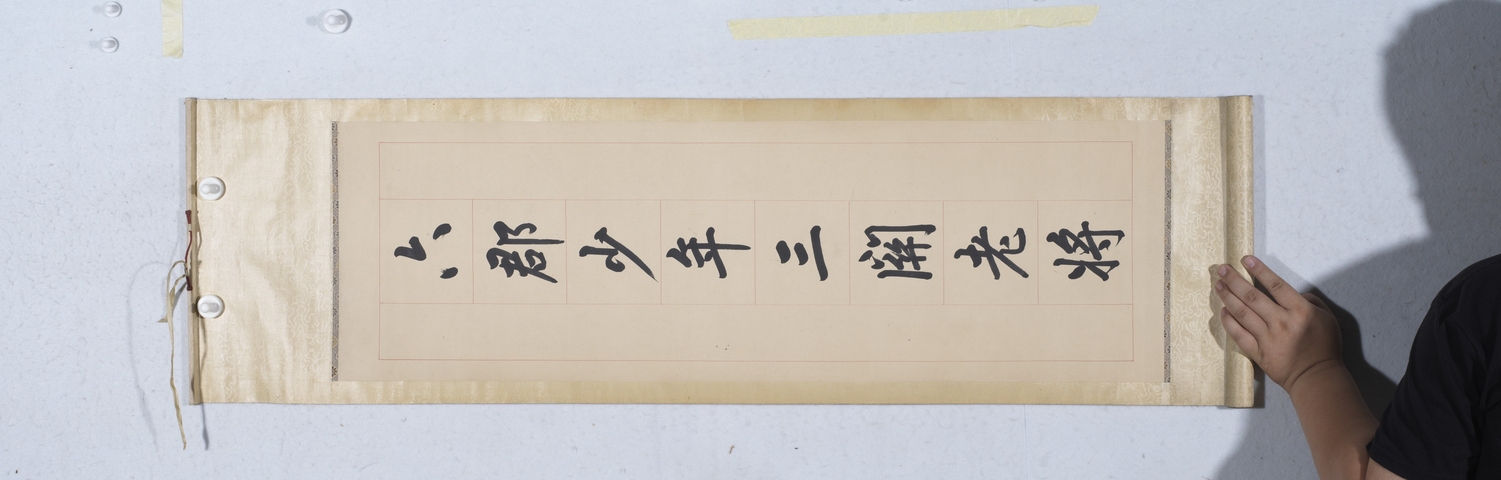 六郡少年三關老將